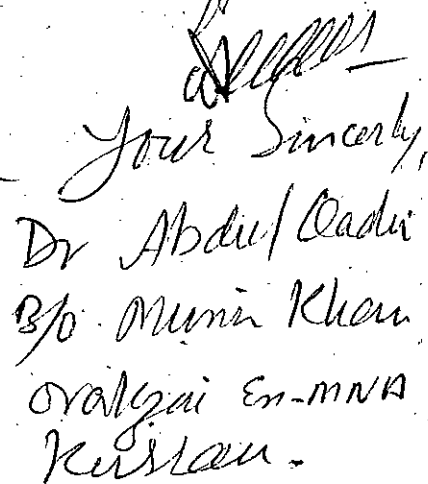 Your Sincerly,
Dr Abdul Qadir
B/o Munir Khan
orakzai Ex-MNA